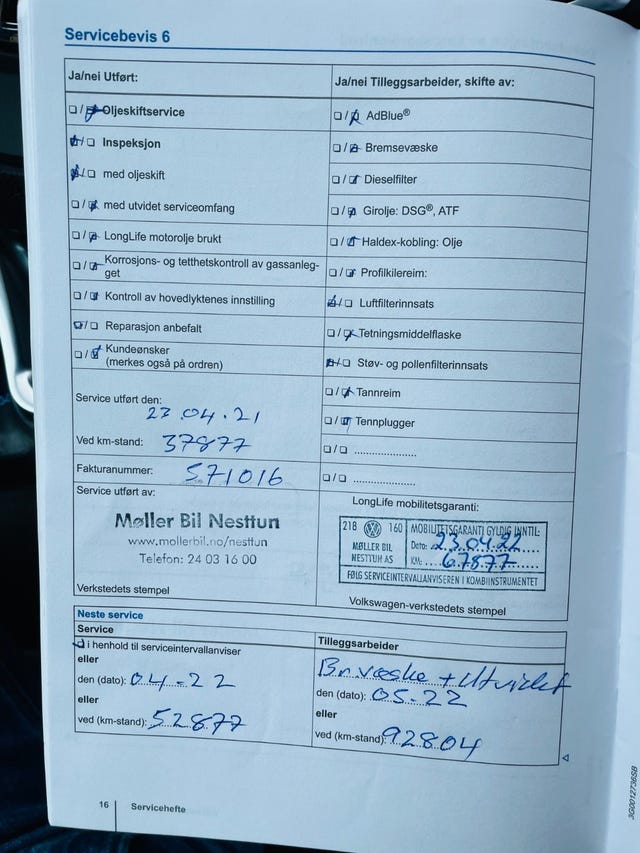 Servicebevis 6
Ja/nei Utført:
Oljeskiftservice
Inspeksjon
med oljeskift
med utvidet serviceomfang
LongLife motorolje brukt
Korrosjons- og tetthetskontroll av gassanleg-
get
Kontroll av hovedlyktenes innstilling
Reparasjon anbefalt
Kundeønsker
(merkes også på ordren)
Ja/nei Tilleggsarbeider, skifte av:
AdBlue®
Bremsevæske
Dieselfilter
Girolje: DSG®, ATF
Haldex-kobling: Olje
Profilkilereim:
Luftfilterinnsats
Tetningsmiddelflaske
Støv- og pollenfilterinnsats
Tannreim
Tennplugger
Service utført den:
23.04.21
Ved km-stand: 37877
Fakturanummer: 571016
Service utført av:
Møller Bil Nesttun
www.mollerbil.no/nesttun
Telefon: 24 03 16 00
Verkstedets stempel
LongLife mobilitetsgaranti:
218 160 MOBILITETSGARANTI GYLDIG INNTIL:
MØLLER BIL
NESTTUN AS
Dato: 23.04.22
KM: 67877
FØLG SERVICEINTERVALLANVISEREN I KOMBIINSTRUMENTET
Volkswagen-verkstedets stempel
Neste service
Service
i henhold til serviceintervallanviser
eller
den (dato): 04-22
eller
ved (km-stand): 52877
Tilleggsarbeider
Br.væske + Utvidet
den (dato): 05.22
eller
ved (km-stand): 92804
16 Servicehefte
3G0012736SB